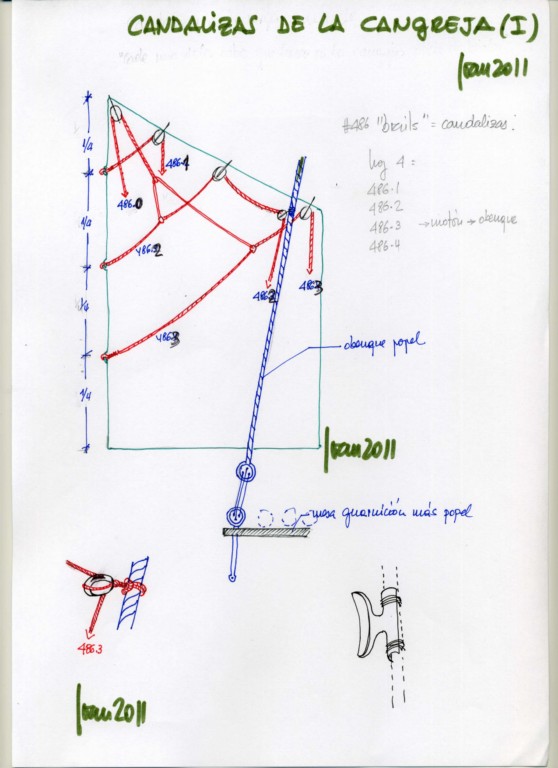 CANDALIZAS DE LA CANGREJA (I)
Ivan2011
#486 "brails" = candalizas:
hay 4 =
486.1
486.2
486.3 → motón → obenque
486.4
1/4
1/4
1/4
1/4
486.1
486.0
486.2
486.3
486.2
486.3
obenque popel
Ivan2011
mesa guarnición más popel
486.3
Ivan2011